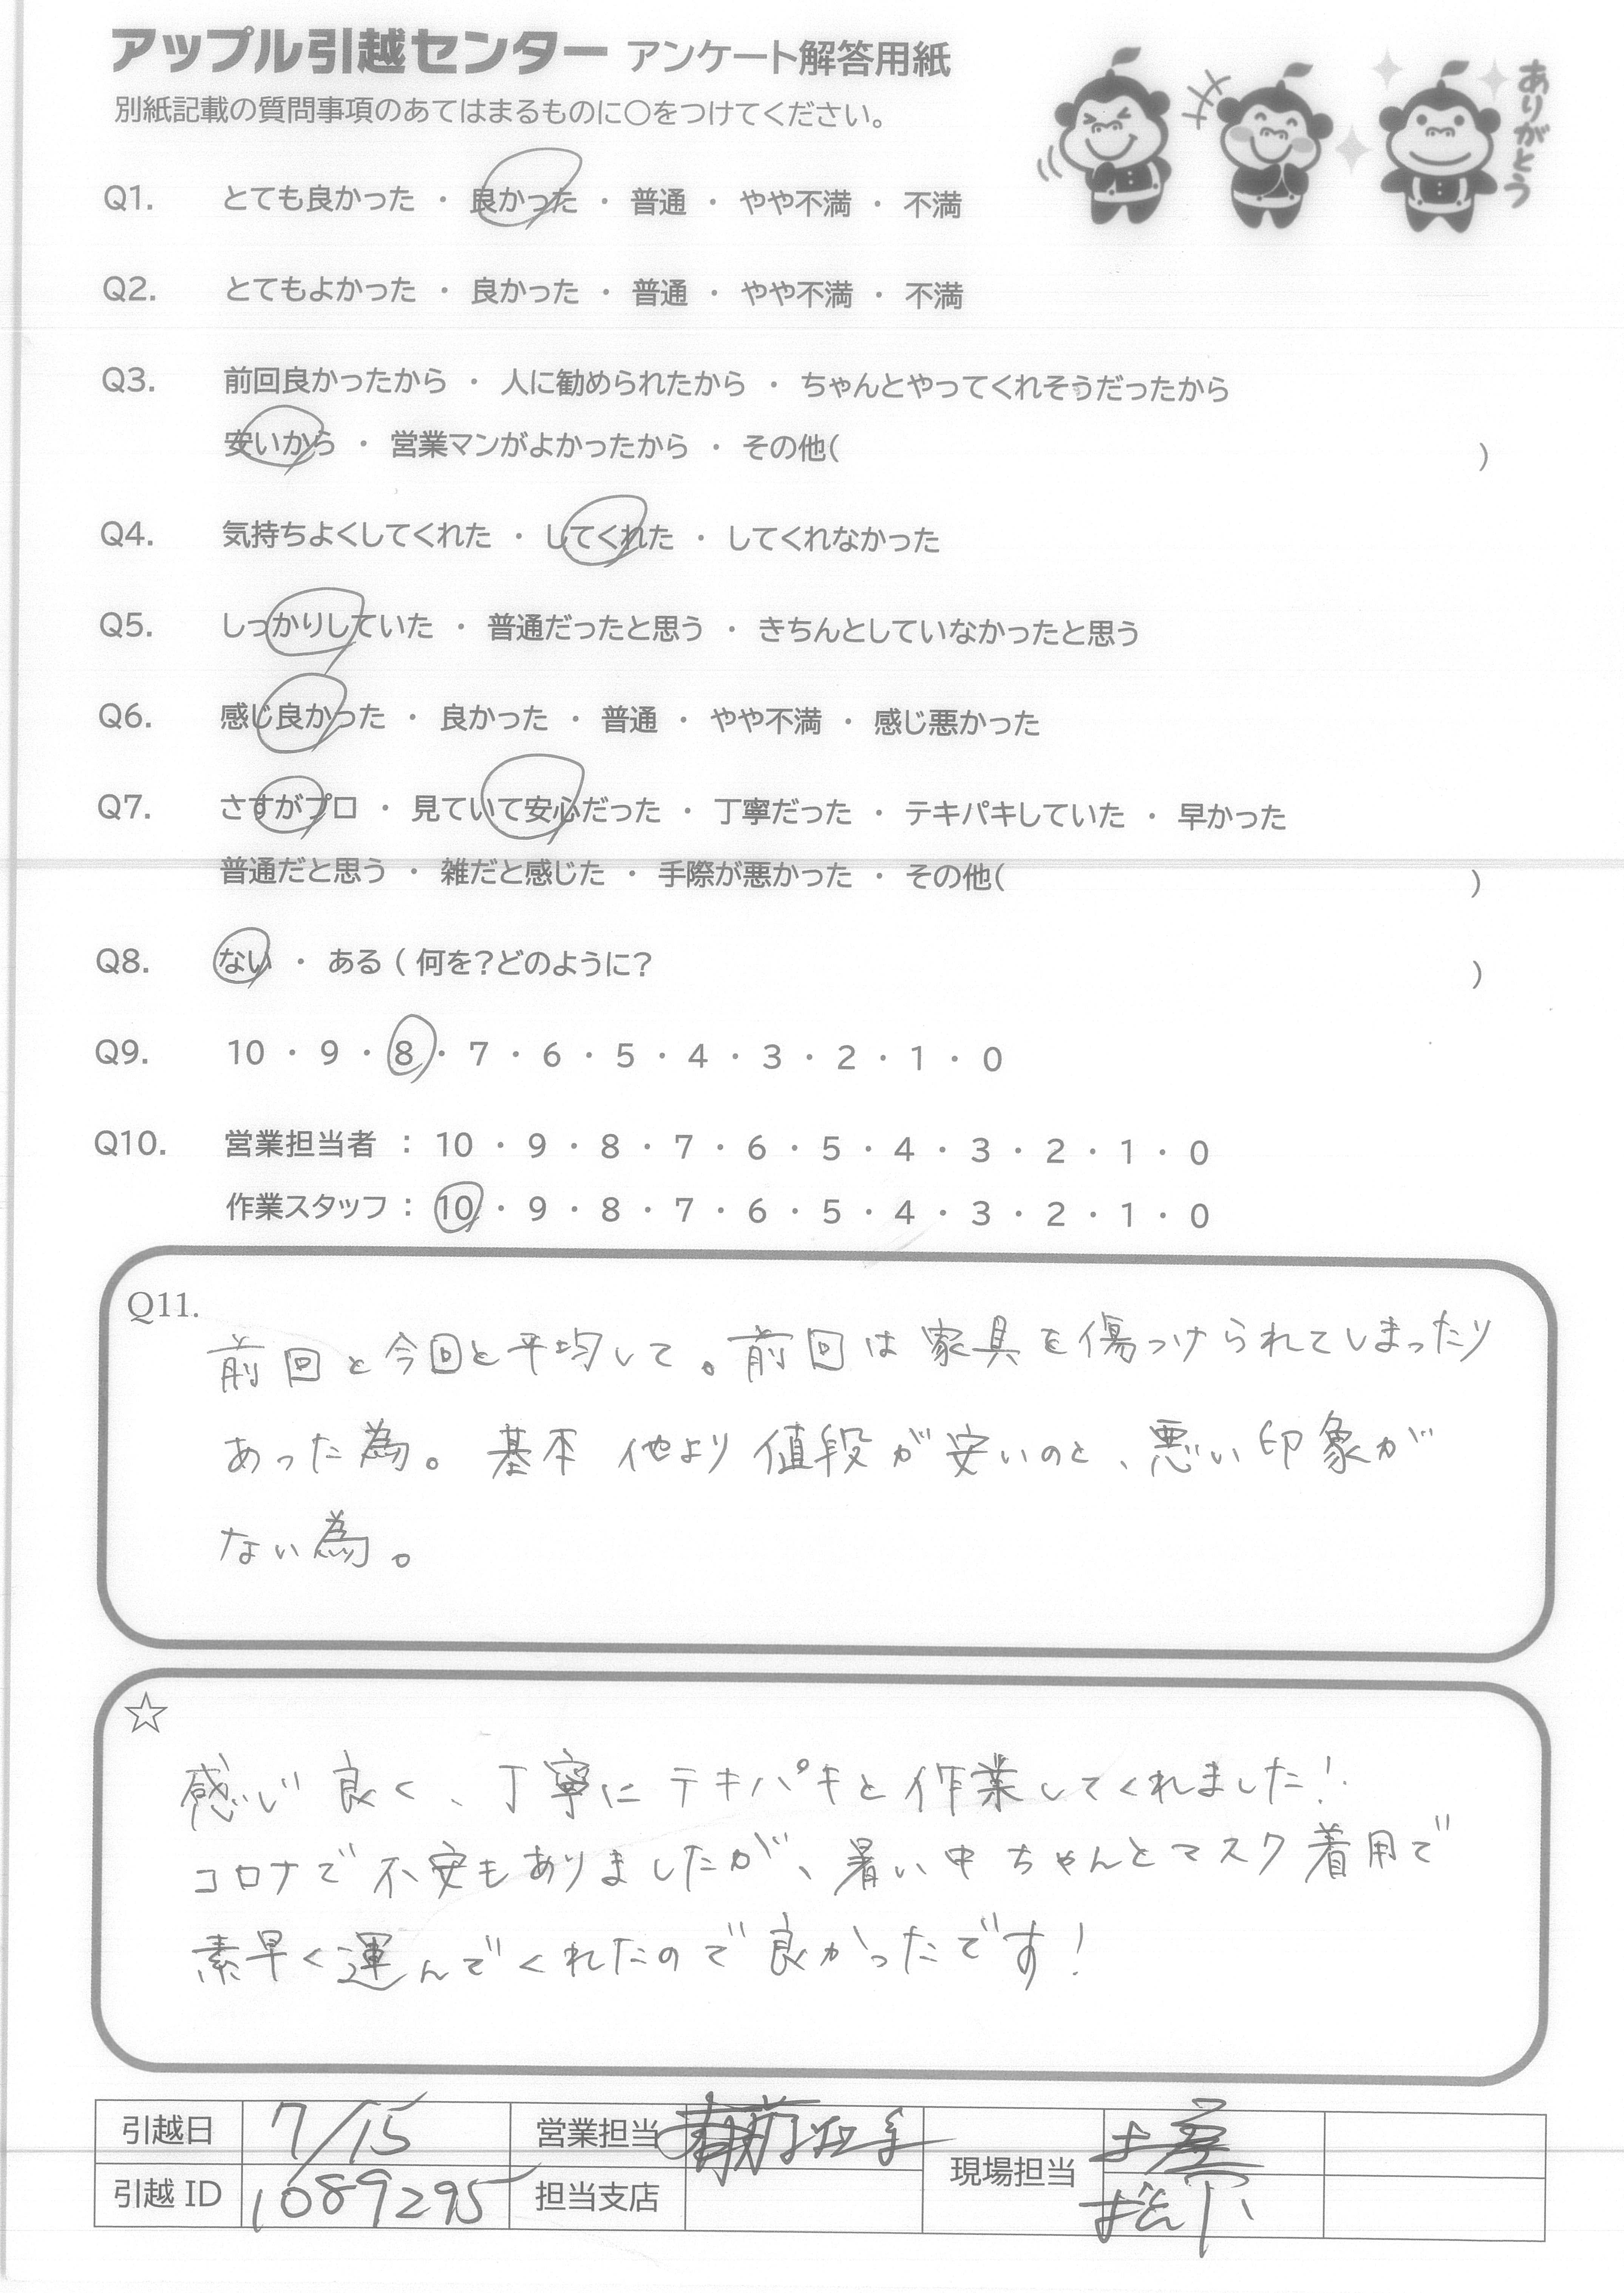 アップル引越センター アンケート解答用紙
別紙記載の質問事項のあてはまるものに○をつけてください。
ありがとう
Q1. とても良かった ・ 良かった ・ 普通 ・ やや不満 ・ 不満
Q2. とてもよかった ・ 良かった ・ 普通 ・ やや不満 ・ 不満
Q3. 前回良かったから ・ 人に勧められたから ・ ちゃんとやってくれそうだったから
安いから ・ 営業マンがよかったから ・ その他( )
Q4. 気持ちよくしてくれた ・ してくれた ・ してくれなかった
Q5. しっかりしていた ・ 普通だったと思う ・ きちんとしていなかったと思う
Q6. 感じ良かった ・ 良かった ・ 普通 ・ やや不満 ・ 感じ悪かった
Q7. さすがプロ ・ 見ていて安心だった ・ 丁寧だった ・ テキパキしていた ・ 早かった
普通だと思う ・ 雑だと感じた ・ 手際が悪かった ・ その他( )
Q8. ない ・ ある ( 何を?どのように? )
Q9. 10 ・ 9 ・ 8 ・ 7 ・ 6 ・ 5 ・ 4 ・ 3 ・ 2 ・ 1 ・ 0
Q10. 営業担当者 : 10 ・ 9 ・ 8 ・ 7 ・ 6 ・ 5 ・ 4 ・ 3 ・ 2 ・ 1 ・ 0
作業スタッフ : 10 ・ 9 ・ 8 ・ 7 ・ 6 ・ 5 ・ 4 ・ 3 ・ 2 ・ 1 ・ 0
Q11.
前回と今回と平均して。前回は家具を傷つけられてしまったり
あった為。基本 他より値段が安いのと、悪い印象が
ない為。
☆
感じ良く、丁寧にテキパキと作業してくれました!
コロナで不安もありましたが、暑い中ちゃんとマスク着用で
素早く運んでくれたので良かったです!
引越日 7/15 営業担当 現場担当
引越 ID 1089295 担当支店